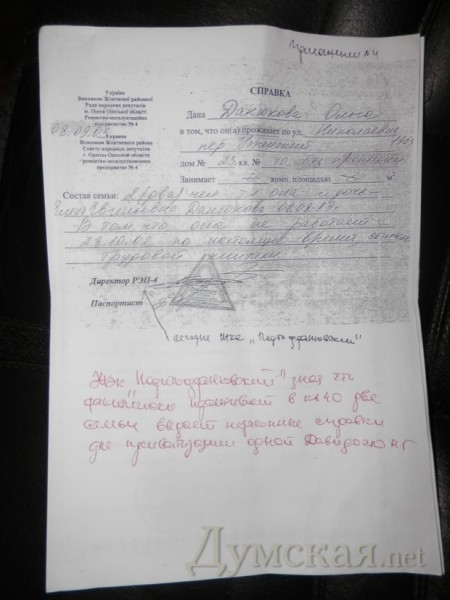 Приложение №4
Україна
Виконком Жовтневої районної
Ради народних депутатів
м. Одеси Одеської області
Ремонтно-експлуатаційне
підприємство № 4
08.09.03
Украина
Исполком Жовтневого района
Совета народных депутатов
г. Одессы Одесской области
Ремонтно-эксплуатационное
предприятие № 4
СПРАВКА
Дана Данюкова Ольга Николаевна
в том, что он(а) проживает по ул.
пер.
дом № 23 кв. № 40 без прописки
Занимает комн. площадью м.
Состав семьи: 2 (два) чел. т.е. она и дочь
Данюкова
В том, что она не работает с
28.10.02 по настоящее время, согласно
трудовой книжки
Директор РЭП-4
Паспортист
сегодня ЖКС „Портофранковский"
ЖЭК „Портофранковский" зная что
проживают в кв 40 две
семьи выдает незаконные справки
для приватизации одной
Думская.net